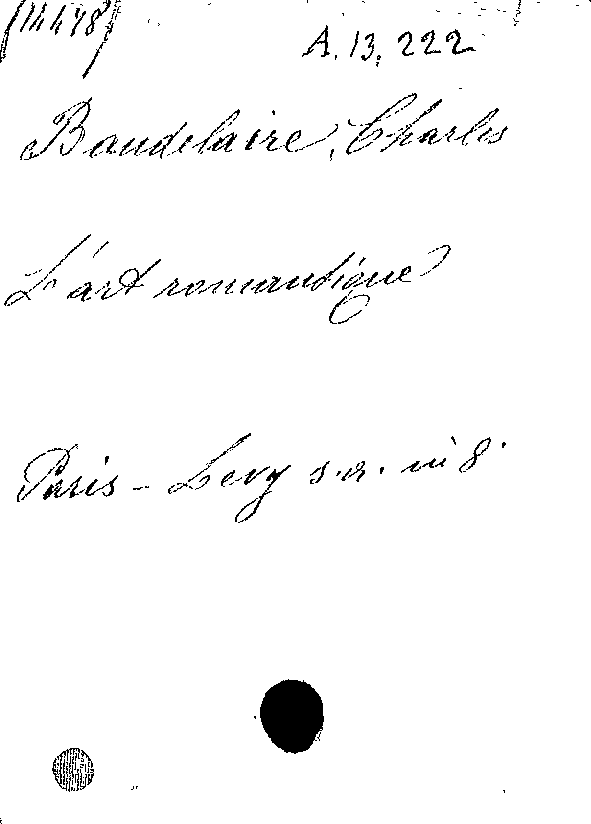 (14478)
A. 13, 222
Baudelaire, Charles
L'art romantique
Paris - Levy s.a. in 8°